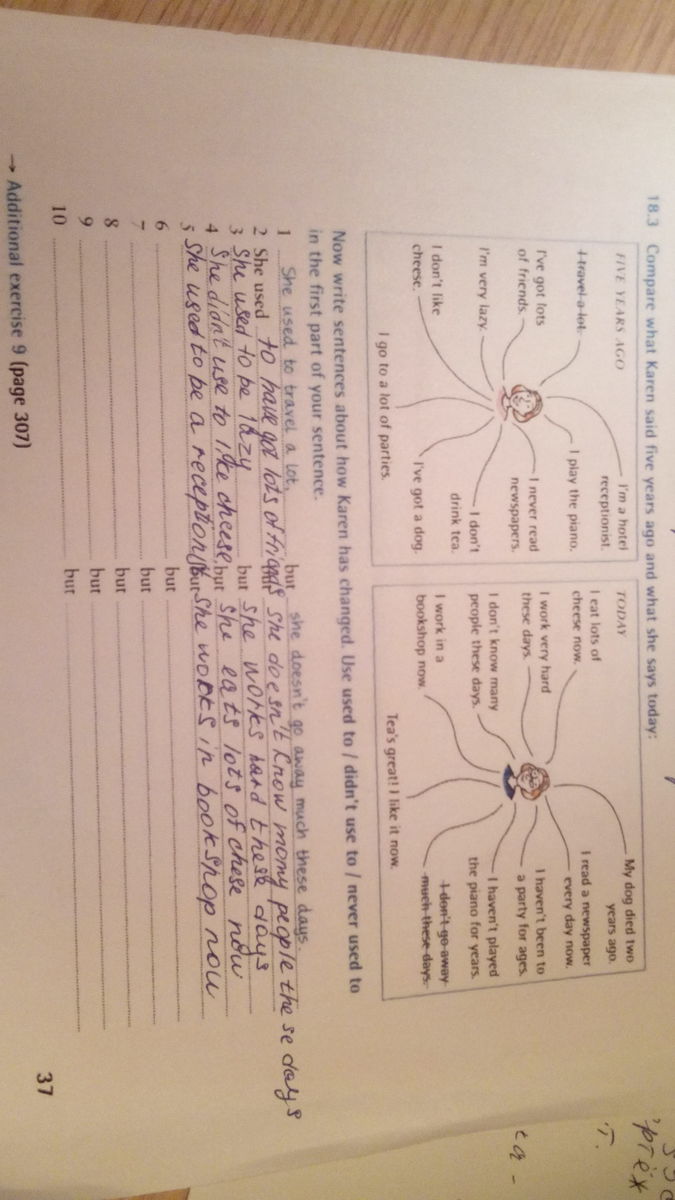 18.3 Compare what Karen said five years ago and what she says today:
FIVE YEARS AGO
I travel a lot.
I'm a hotel
receptionist.
I've got lots
of friends.
I play the piano.
I'm very lazy.
I never read
newspapers.
I don't like
cheese.
I don't
drink tea.
I go to a lot of parties.
I've got a dog.
TODAY
I eat lots of
cheese now.
My dog died two
years ago.
I work very hard
these days.
I read a newspaper
every day now.
I don't know many
people these days.
I haven't been to
a party for ages.
I work in a
bookshop now.
I haven't played
the piano for years.
Tea's great! I like it now.
I don't go away
much these days.
Now write sentences about how Karen has changed. Use used to / didn't use to / never used to
in the first part of your sentence.
1 She used to travel a lot, but she doesn't go away much these days.
2 She used to have got lots of friends she doesn't know many people these days
3 She used to be lazy but she works hard these days
4 She didn't use to like cheese, but she eats lots of chese now
5 She used to be a receptionist but she works in bookshop now
6 but
7 but
8 but
9 but
10 but
→ Additional exercise 9 (page 307)
37